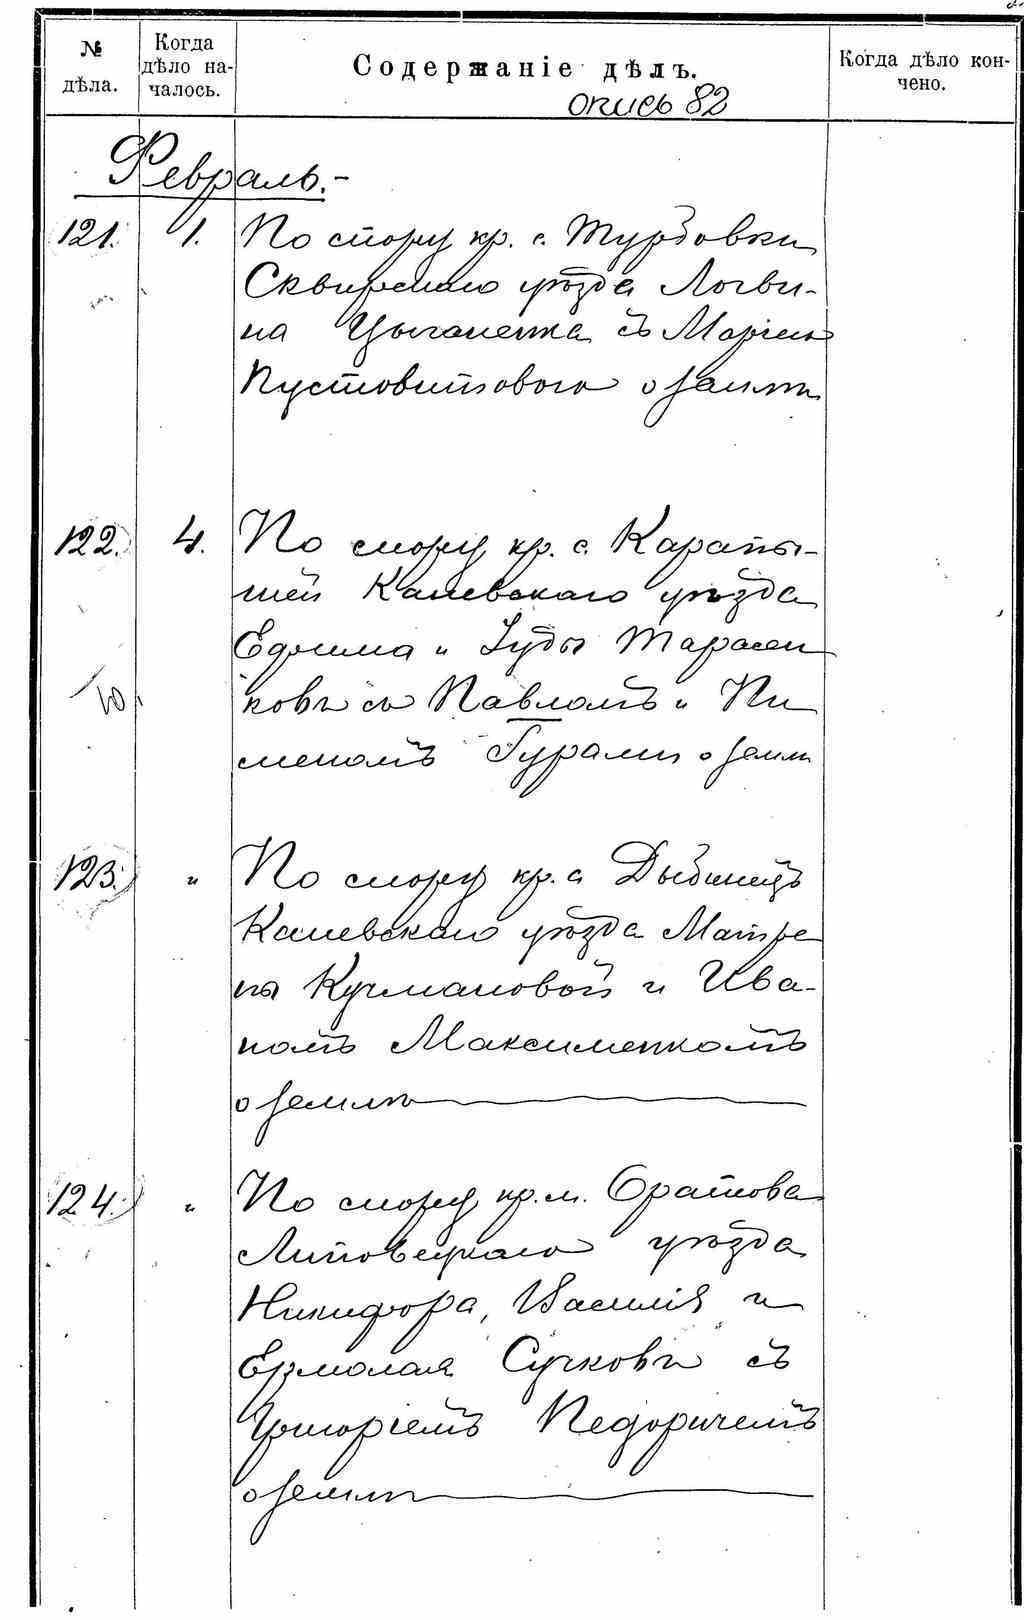 № дѣла.
Когда дѣло началось.
Содержаніе дѣлъ.
Когда дѣло кончено.
опись 82
Февраль.-
121. 1. По спору кр. с. Турбовки
Сквирскаго уѣзда Логви-
на Цыганенка съ Маріею
Пустовитовою о землѣ
122. 4. По спору кр. с. Карапы-
шей Каневскаго уѣзда
Ефима и Іуды Тарасен
ковъ съ Павломъ и Пи
меномъ Гурами о землѣ
123. " По спору кр. с. Дыбинецъ
Каневскаго уѣзда Матре
ны Кучмановой и Ива-
номъ Максименкомъ
о землѣ
124. " По спору кр. м. Оратова
Липовецкаго уѣзда
Никифора, Василія и
Ермолая Сучковъ съ
Григоріемъ Педоричемъ
о землѣ